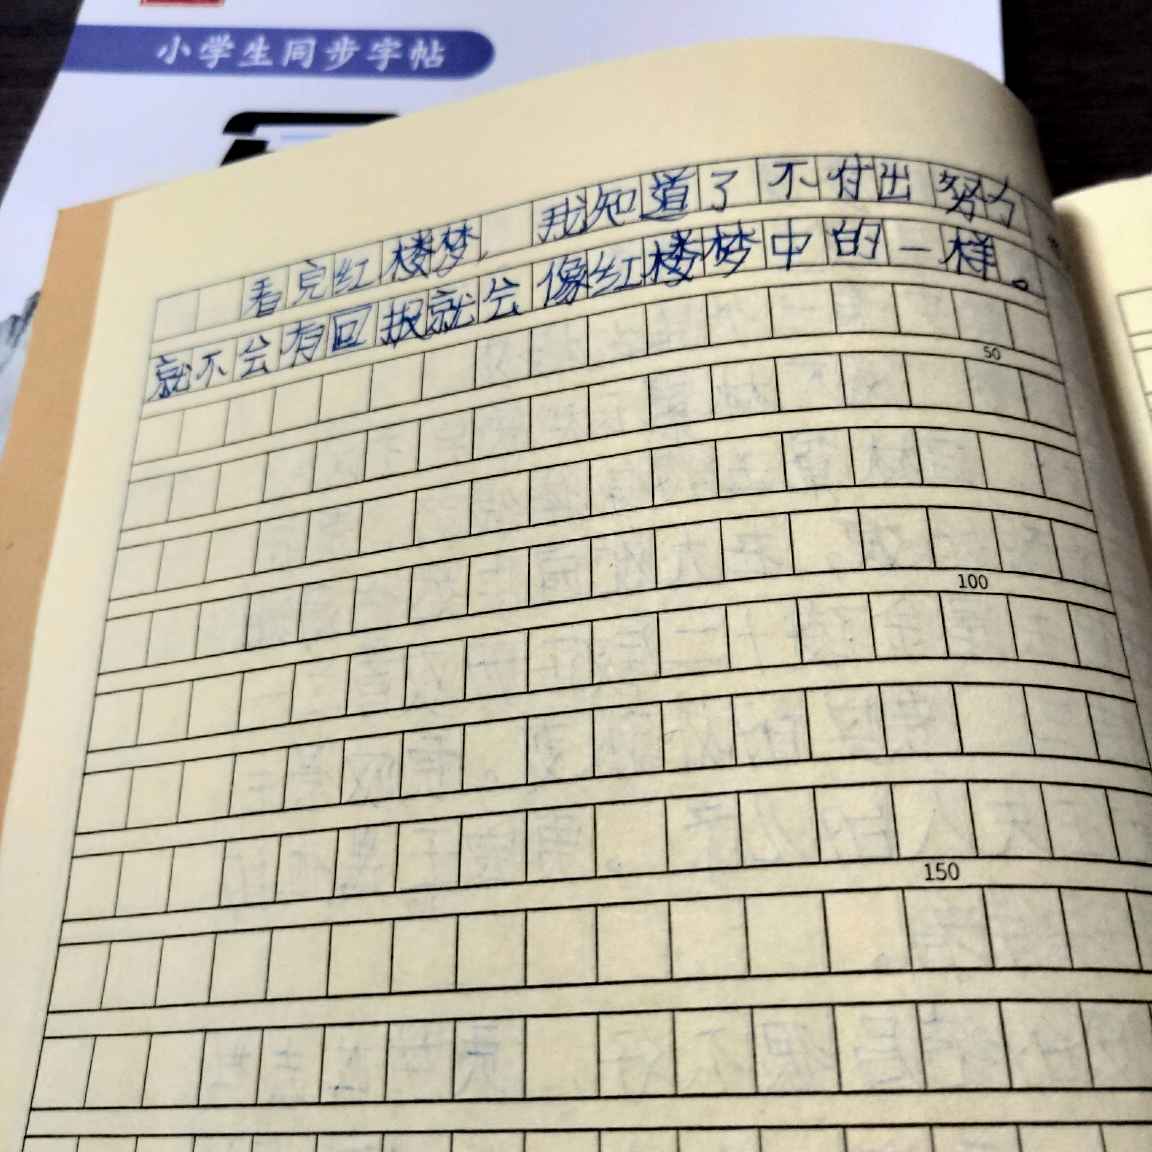 小学生同步字帖
看完红楼梦,我知道了不付出努力
就不会有回报就会像红楼梦中的一样。
50
100
150